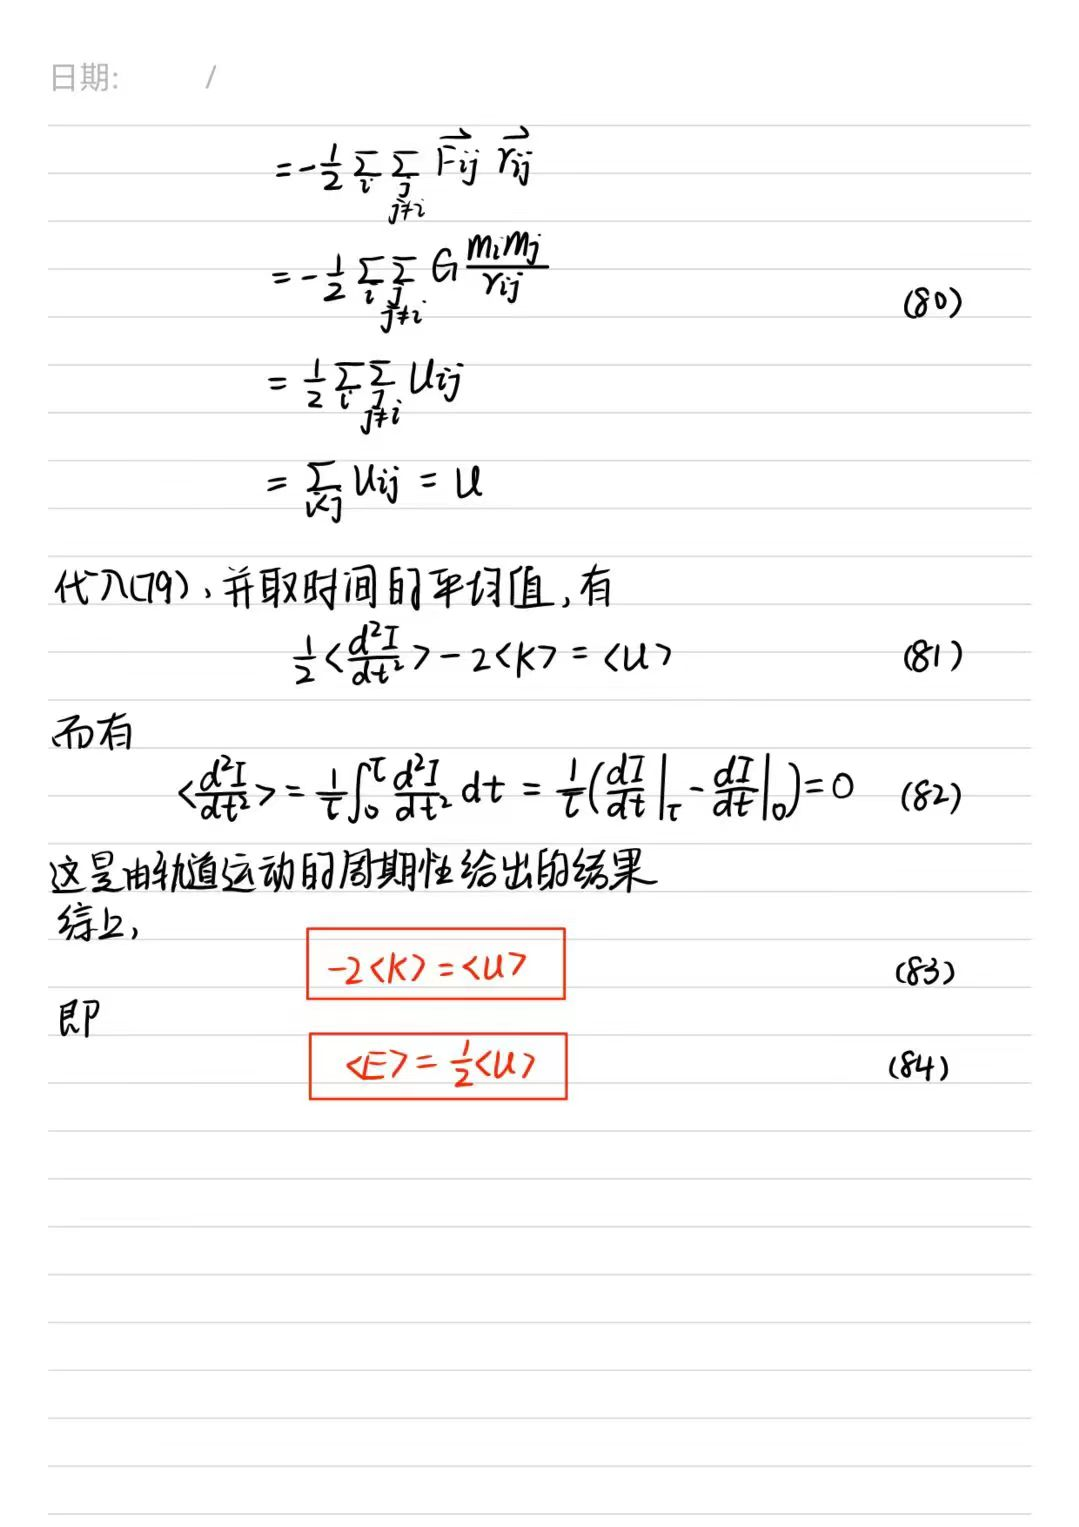 日期: /
=-1/2 Σ_i Σ_{j j≠i} \vec{F_{ij}} \vec{r_{ij}}
=-1/2 Σ_i Σ_{j j≠i} G m_i m_j / r_{ij} (80)
= 1/2 Σ_i Σ_{j j≠i} U_{ij}
= Σ_{i<j} U_{ij} = U
代入(79),并取时间的平均值,有
1/2 <d²I/dt²> - 2<K> = <U> (81)
而有
<d²I/dt²> = 1/τ ∫_0^τ d²I/dt² dt = 1/τ (dI/dt|_τ - dI/dt|_0) = 0 (82)
这是由轨道运动的周期性给出的结果
综上,
-2<K> = <U> (83)
即
<E> = 1/2 <U> (84)